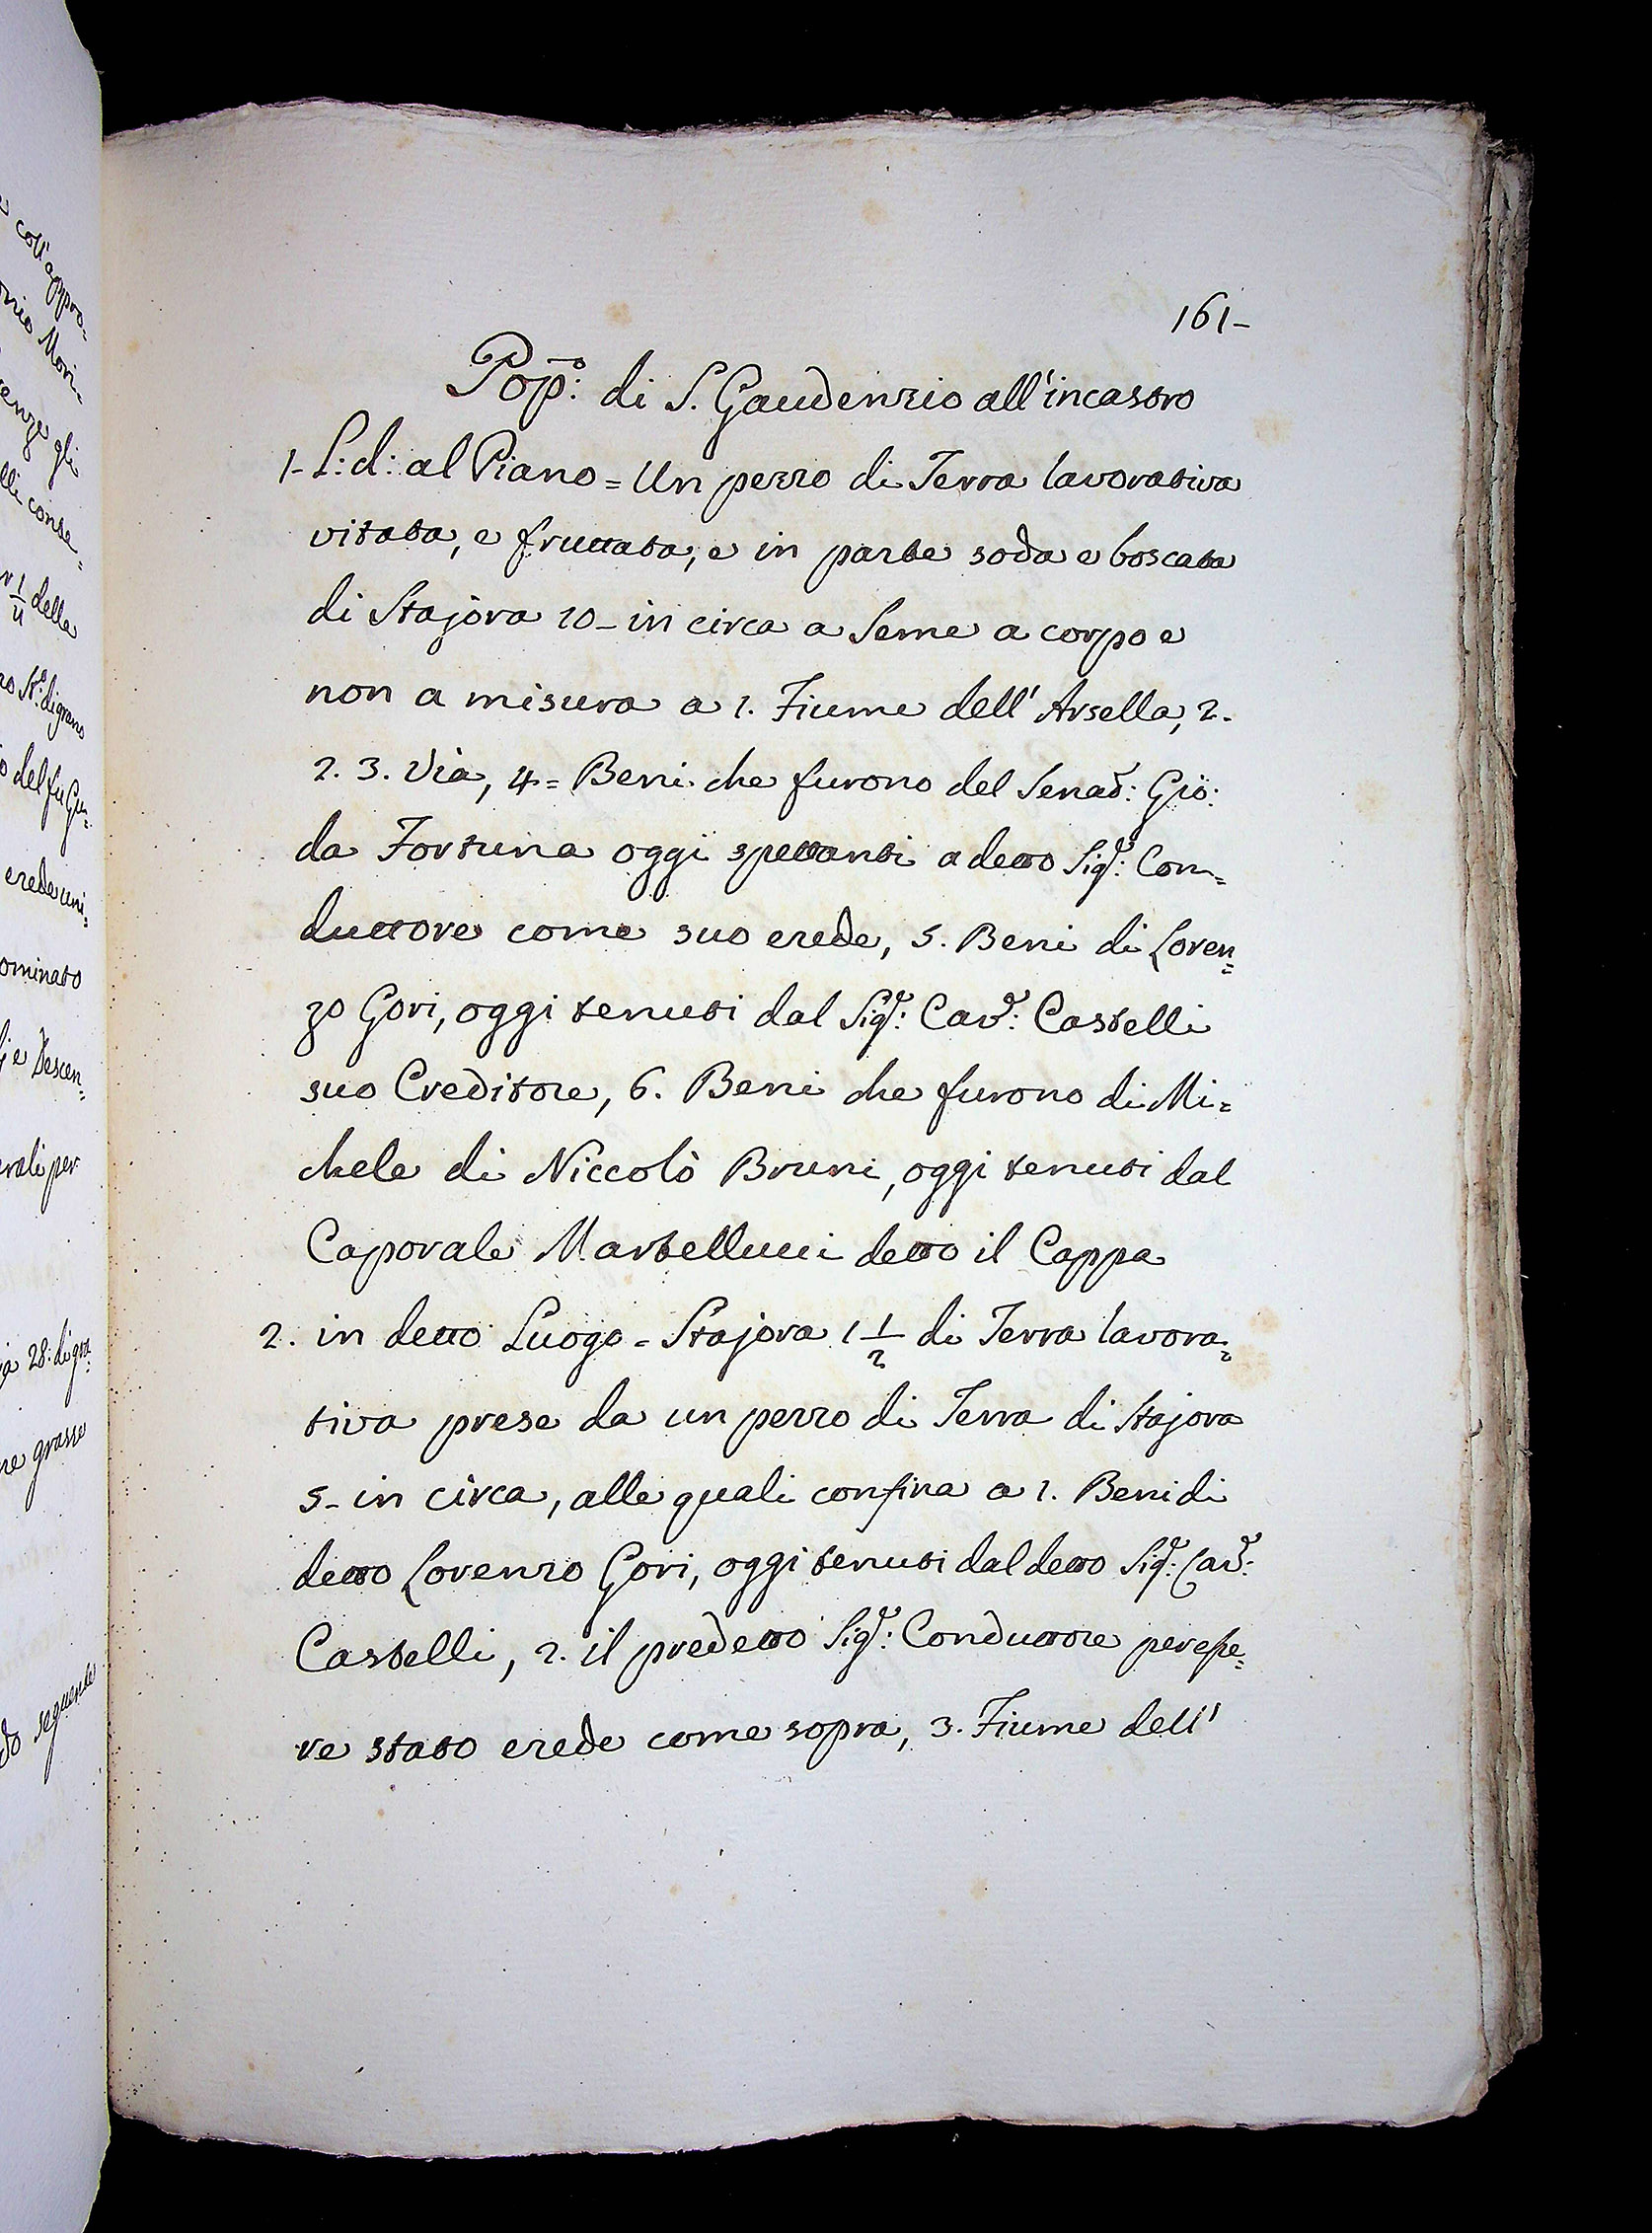 coll'appro-
onio Mori-
enze gli
lli conse-
1/4 della
ro St.º di grano
o del fu Giu=
erede uni=
ominato
e Descen=
rali per
28: di gra
ne grasse
do seguente
161-
Pop.º: di S. Gaudenzio all'incastro
1- L: d: al Piano = Un pezzo di Terra lavorativa
vitata, e fruttata, e in parte soda e boscata
di Stajora 10- in circa a Seme a corpo e
non a misura a 1. Fiume dell' Arsella, 2.
2. 3. Via, 4= Beni che furono del Senat.: Gio:
da Fortuna oggi spettanti a detto Sig.r: Con=
duttore come suo erede, 5. Beni di Loren=
zo Gori, oggi tenuti dal Sig.r: Cav.r: Castelli
suo Creditore, 6. Beni che furono di Mi=
chele di Niccolò Bruni, oggi tenuti dal
Caporale Martellucci detto il Cappa
2. in detto Luogo = Stajora 1 1/2 di Terra lavora=
tiva prese da un pezzo di Terra di Stajora
5- in circa, alle quali confina a 1. Beni di
detto Lorenzo Gori, oggi tenuti dal detto Sig.r: Cav.r:
Castelli, 2. il predetto Sig.r: Conduttore per esse=
re stato erede come sopra, 3. Fiume dell'